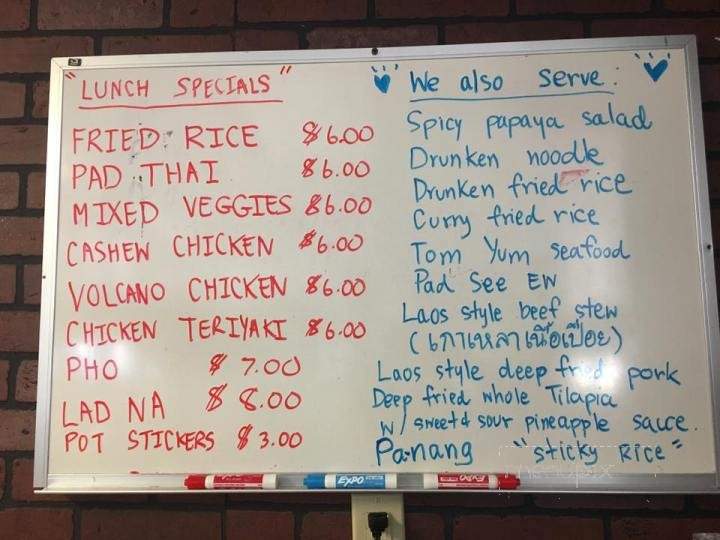 "LUNCH SPECIALS"
FRIED RICE $6.00
PAD THAI $6.00
MIXED VEGGIES $6.00
CASHEW CHICKEN $6.00
VOLCANO CHICKEN $6.00
CHICKEN TERIYAKI $6.00
PHO $7.00
LAD NA $8.00
POT STICKERS $3.00
We also serve:
Spicy papaya salad
Drunken noodle
Drunken fried rice
Curry fried rice
Tom Yum seafood
Pad See EW
Laos style beef stew
(เกาเหลาเนื้อเปื่อย)
Laos style deep fried pork
Deep fried whole Tilapia
w/ sweet & sour pineapple sauce.
Panang "sticky RICE"
EXPO